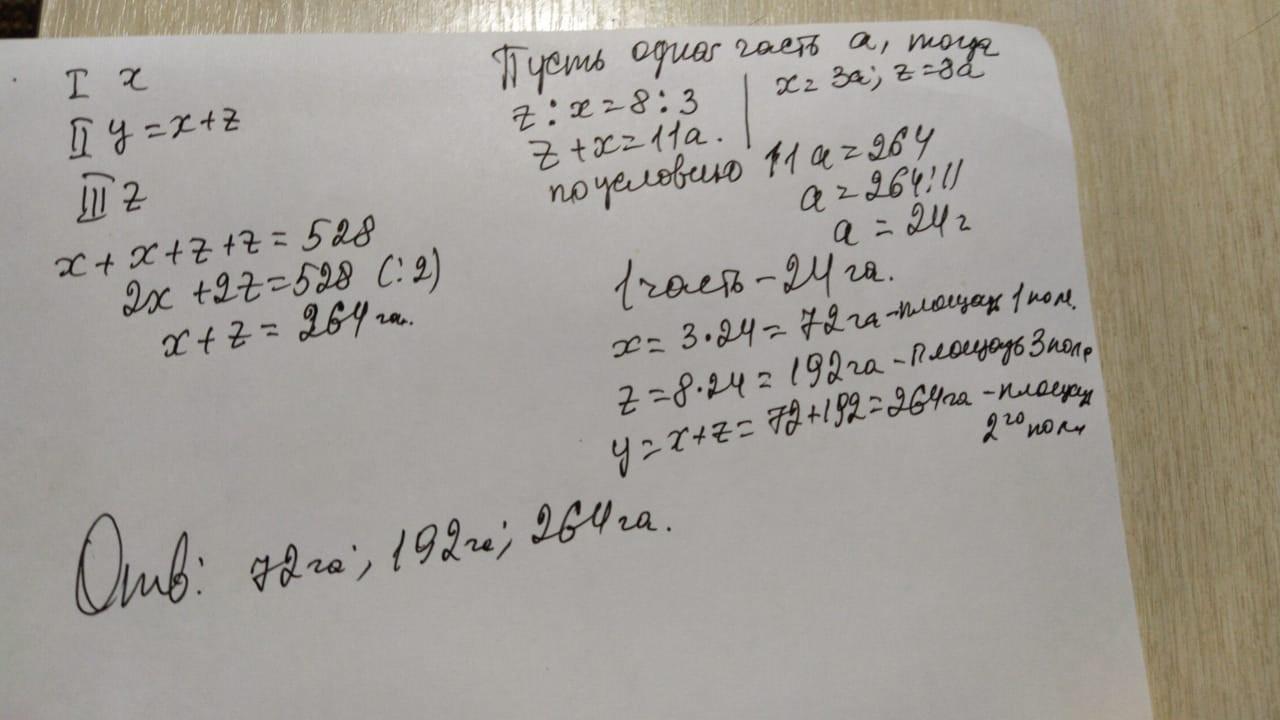 I x
II y = x+z
III z
x + x + z + z = 528
2x + 2z = 528 (:2)
x + z = 264 га.
Пусть одна часть а, тогда
z : x = 8 : 3
x = 3а; z = 8а
z + x = 11а.
по условию 11а = 264
а = 264:11
а = 24 г
1 часть - 24 га.
x = 3·24 = 72 га - площадь 1 поля.
z = 8·24 = 192 га - площадь 3 поля
y = x+z = 72+192 = 264 га - площадь
2го поля
Отв: 72 га; 192 га; 264 га.